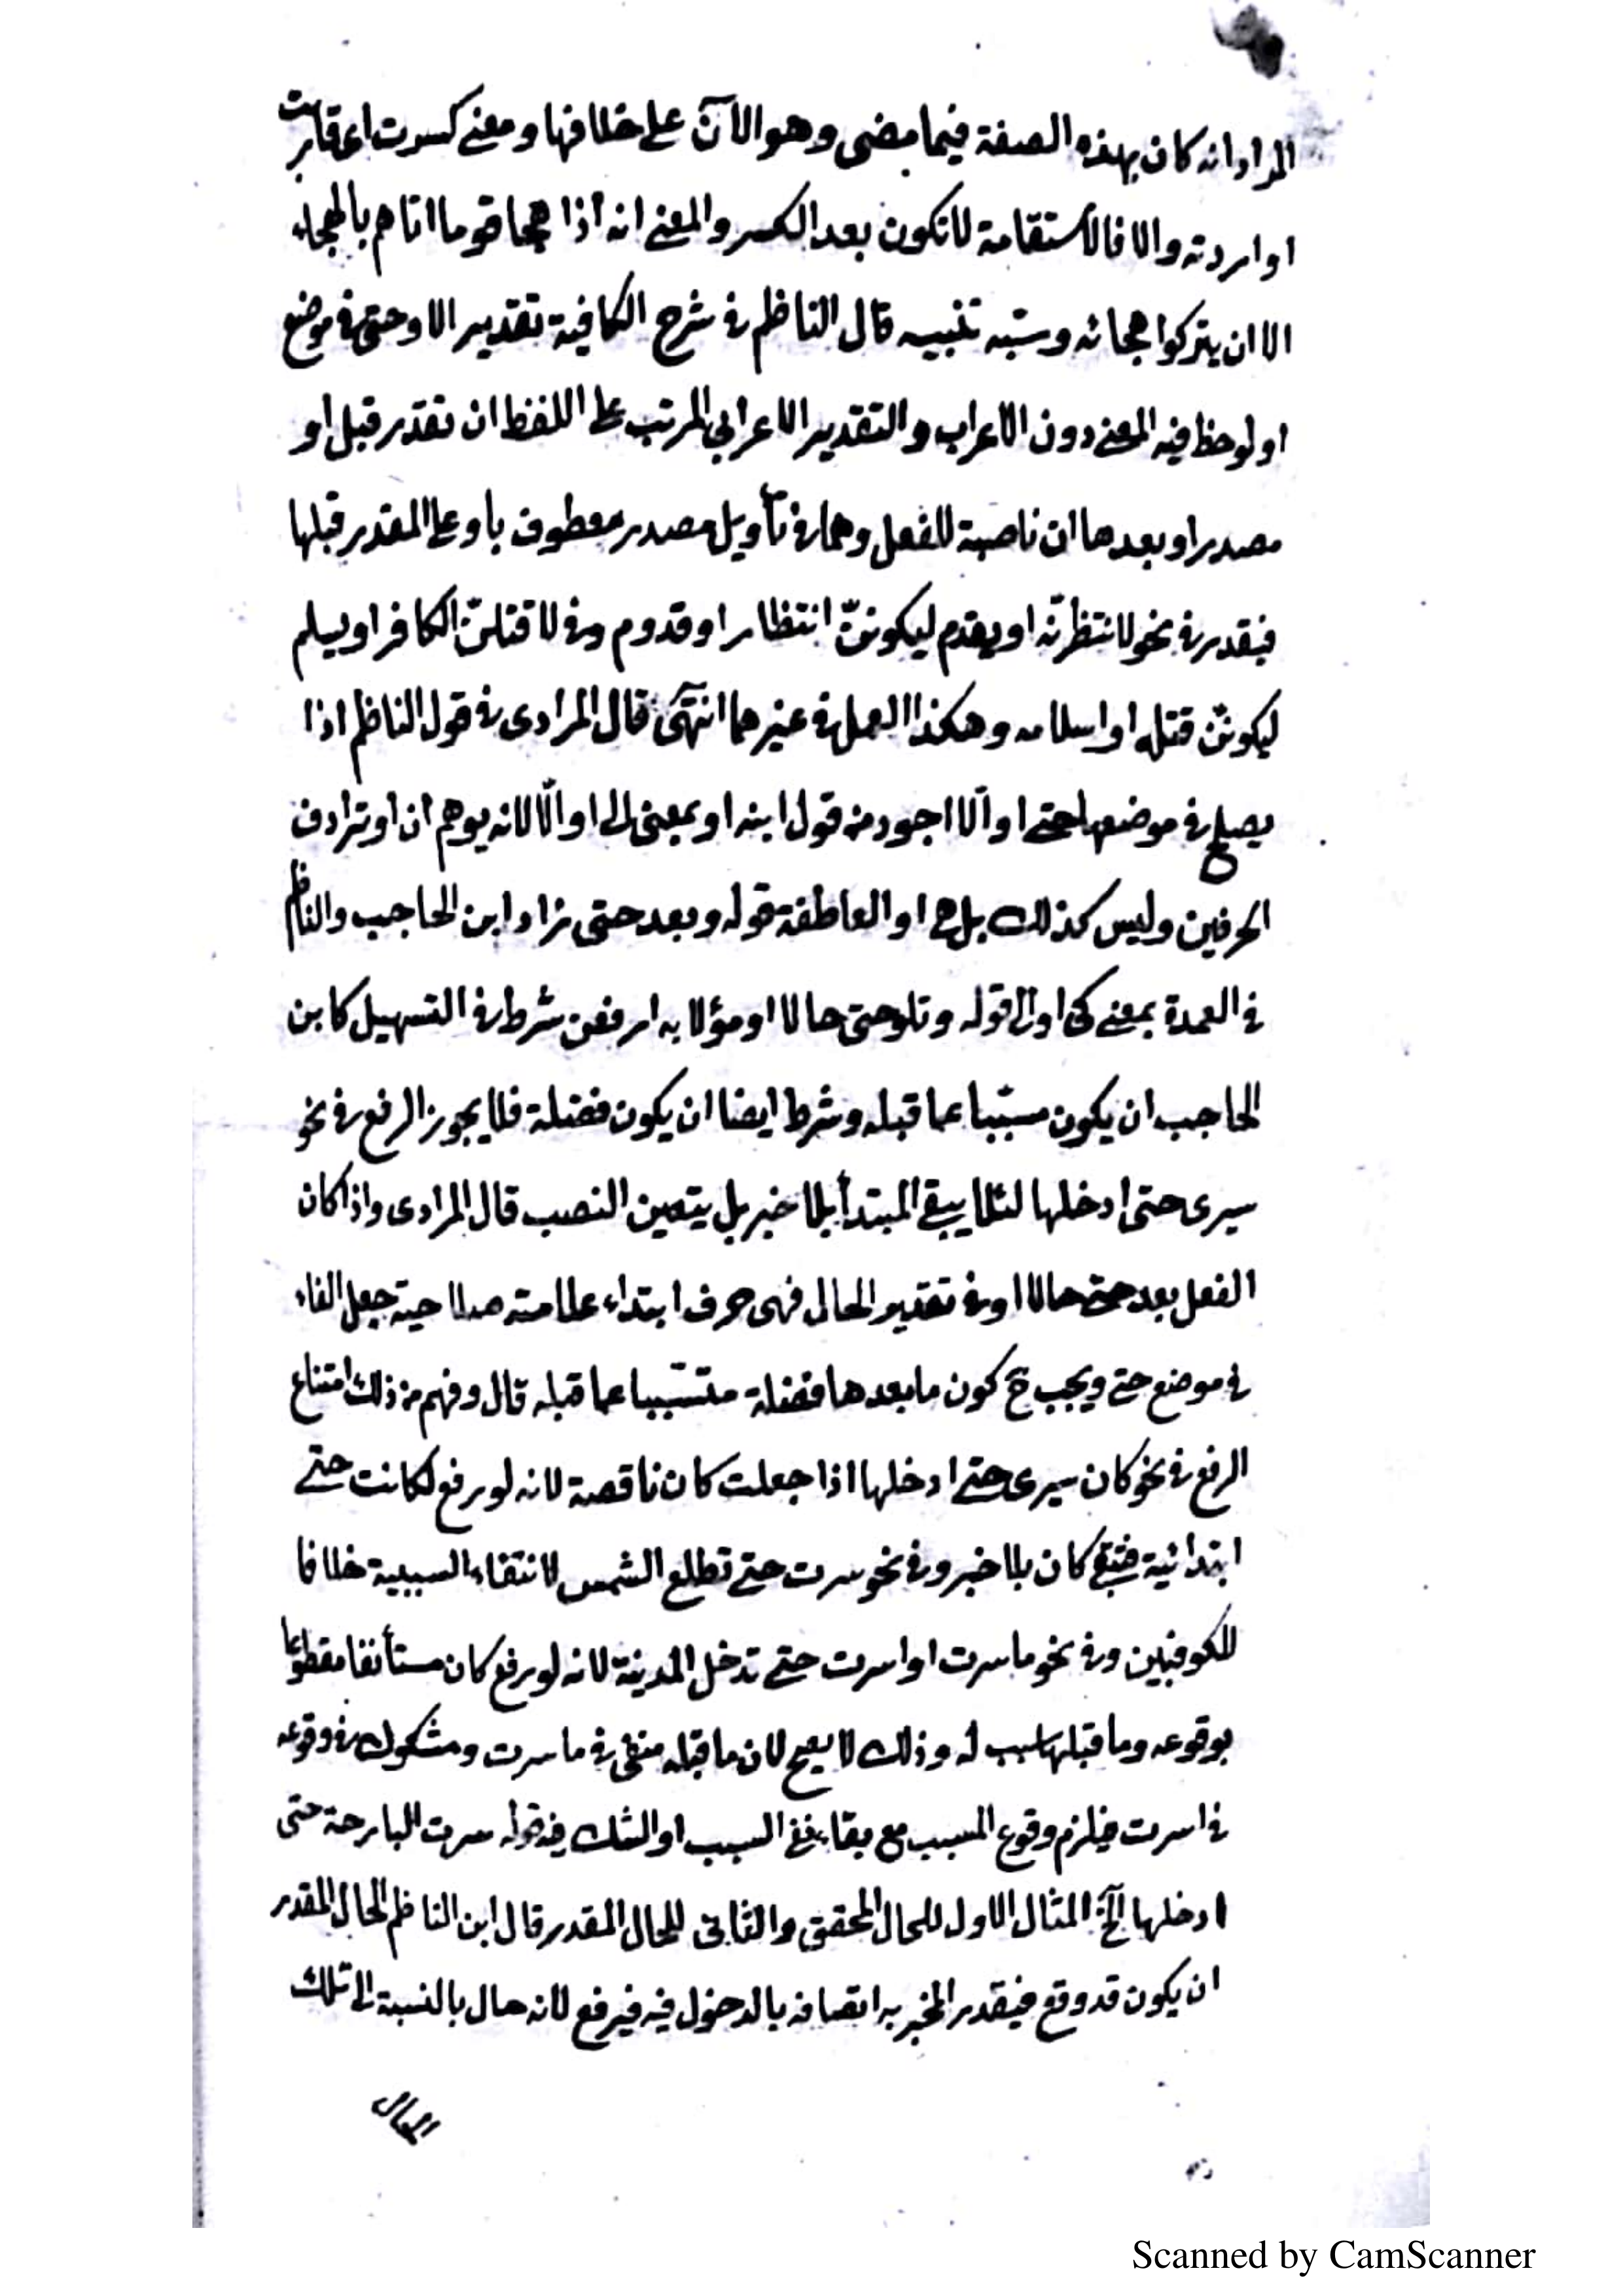 المراد انه كان بهذه الصفة فيما مضى وهو الآن على خلافها ومعنى كسرت اى قاربت
او اردته والا فالاستقامة لا تكون بعد الكسر والمعنى انه اذا هجا قوما اتاهم بالهجاء
الا ان يتركوا هجائه وسبه تنبيه قال الناظم فى شرح الكافية تقدير الا وحتى فى موضع
او لوحظ فيه المعنى دون الاعراب والتقدير الاعرابى المرتب على اللفظ ان تقدر قبل او
مصدرا وبعدها ان ناصبة للفعل وهما فى تأويل مصدر معطوف باو على المقدر قبلها
فيقدر فى نحو لانتظرنّه او يقدم ليكوننّ انتظار او قدوم وفى لاقتلنّ الكافر او يسلم
ليكوننّ قتله او اسلامه وهكذا العمل فى غيرهما انتهى قال المرادى فى قول الناظم اذا
يصلح فى موضعها حتى او الّا اجود من قول ابنه او بمعنى الى او الّا لانه يوهم ان او ترادف
الحرفين وليس كذلك بل هى او العاطفة قوله وبعد حتى زاد ابن الحاجب والناظم
فى العمدة بمعنى كى او الى قوله وتلو حتى حالا او مؤلا به ارفعن شرط فى التسهيل كابن
الحاجب ان يكون مسببا عما قبله وشرط ايضا ان يكون فضلة فلا يجوز الرفع فى نحو
سيرى حتى ادخلها لئلا يبقى المبتدأ بلا خبر بل يتعين النصب قال المرادى واذا كان
الفعل بعد حتى حالا او فى تقدير الحال فهى حرف ابتداء علامته صلاحية جعل الفاء
فى موضع حتى ويجب ح كون ما بعدها فضلة متسببا عما قبله قال وفهم من ذلك امتناع
الرفع فى نحو كان سيرى حتى ادخلها اذا جعلت كان ناقصة لانه لو رفع لكانت حتى
ابتدائية فتبقى كان بلا خبر وفى نحو سرت حتى تطلع الشمس لانتفاء السببية خلافا
للكوفيين وفى نحو ما سرت او اسرت حتى تدخل المدينة لانه لو رفع كان مستأنفا مقطوعا
بوقوعه وما قبلها سبب له وذلك لا يصح لان ما قبله منفى فى ما سرت ومشكوك فى وقوعه
فى اسرت فيلزم وقوع المسبب مع بقاء نفى السبب او الشك فيه قوله سرت البارحة حتى
ادخلها الخ المثال الاول للحال المحقق والثانى للحال المقدر قال ابن الناظم الحال المقدر
ان يكون قد وقع فيقدر المخبر به اتصافه بالدخول فيه فيرفع لانه حال بالنسبة الى تلك
الحال
Scanned by CamScanner